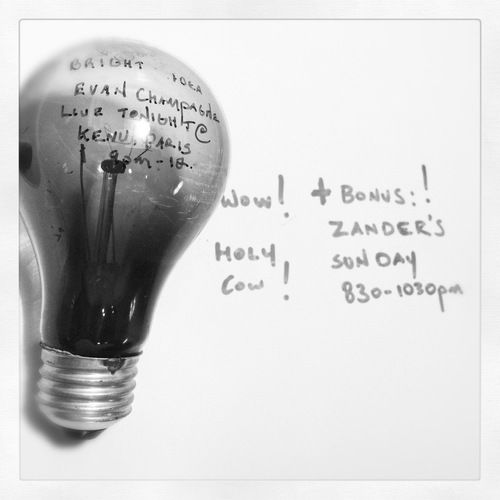 BRIGHT IDEA
EVAN CHAMPAGNE
LIVE TONIGHT @
KENU, PARIS
9pm-12.
WOW!
HOLY
COW!
+ BONUS:!
ZANDER'S
SUNDAY
830-1030pm